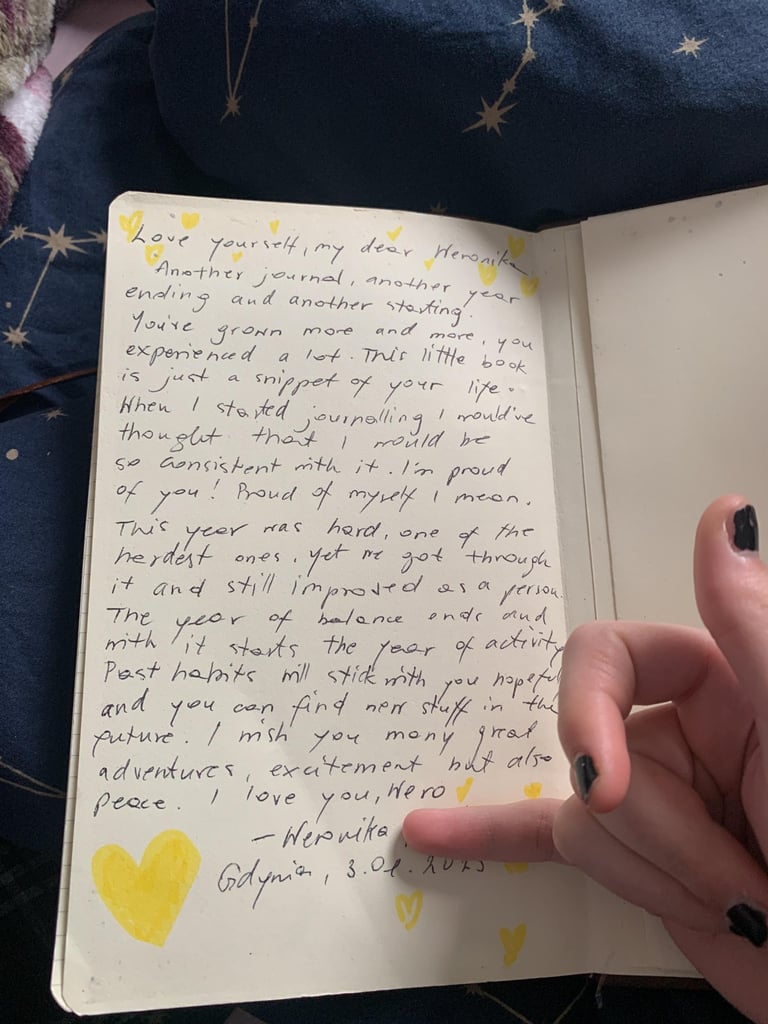 Love yourself, my dear Weronika
Another journal, another year
ending and another starting.
You've grown more and more, you
experienced a lot. This little book
is just a snippet of your life.
When I started journalling I would've
thought that I would be
so consistent with it. I'm proud
of you! Proud of myself I mean.
This year was hard, one of the
herdest ones, yet we got through
it and still improved as a person.
The year of balance ends and
with it starts the year of activity
Past habits will stick with you hopeful
and you can find new stuff in the
future. I wish you many great
adventures, excitement but also
peace. I love you, Wero
– Weronika
Gdynia, 3.01.2023